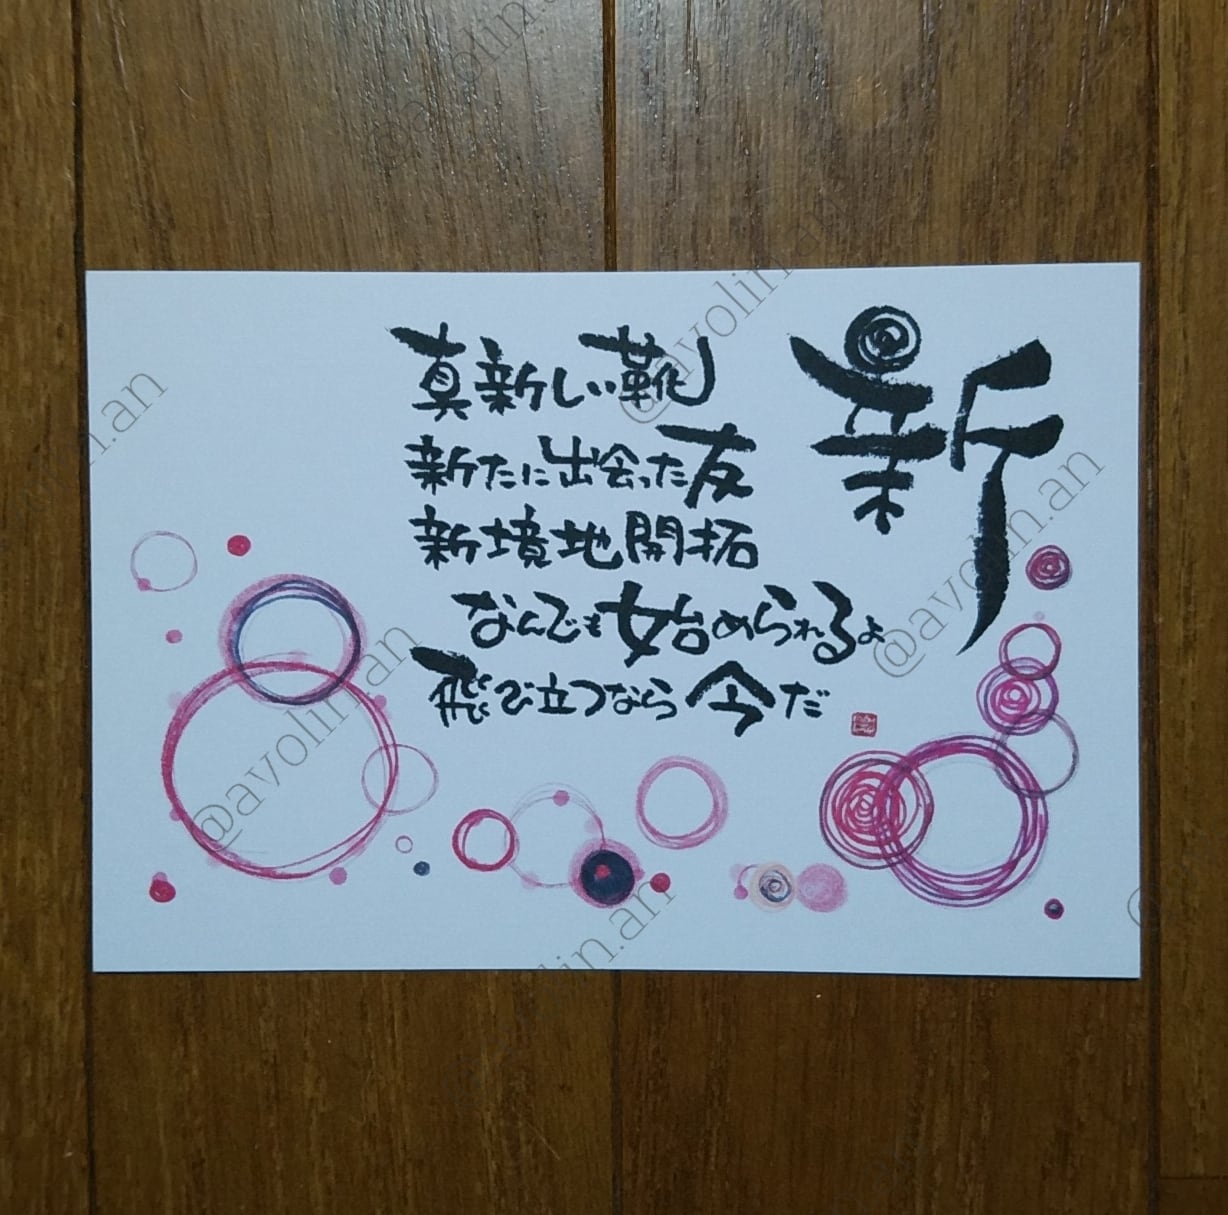 新
真新しい靴
新たに出会った友
新境地開拓
なんでも始められるよ
飛び立つなら今だ
@avolin.an
@avolin.an
@avolin.an
@avolin.an